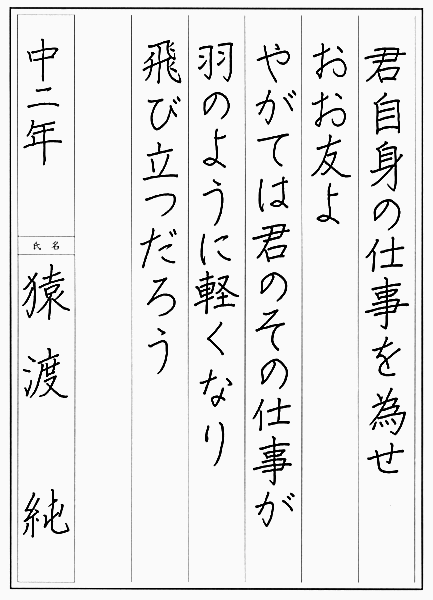 君自身の仕事を為せ
おお友よ
やがては君のその仕事が
羽のように軽くなり
飛び立つだろう
中二年
氏名
猿渡 純